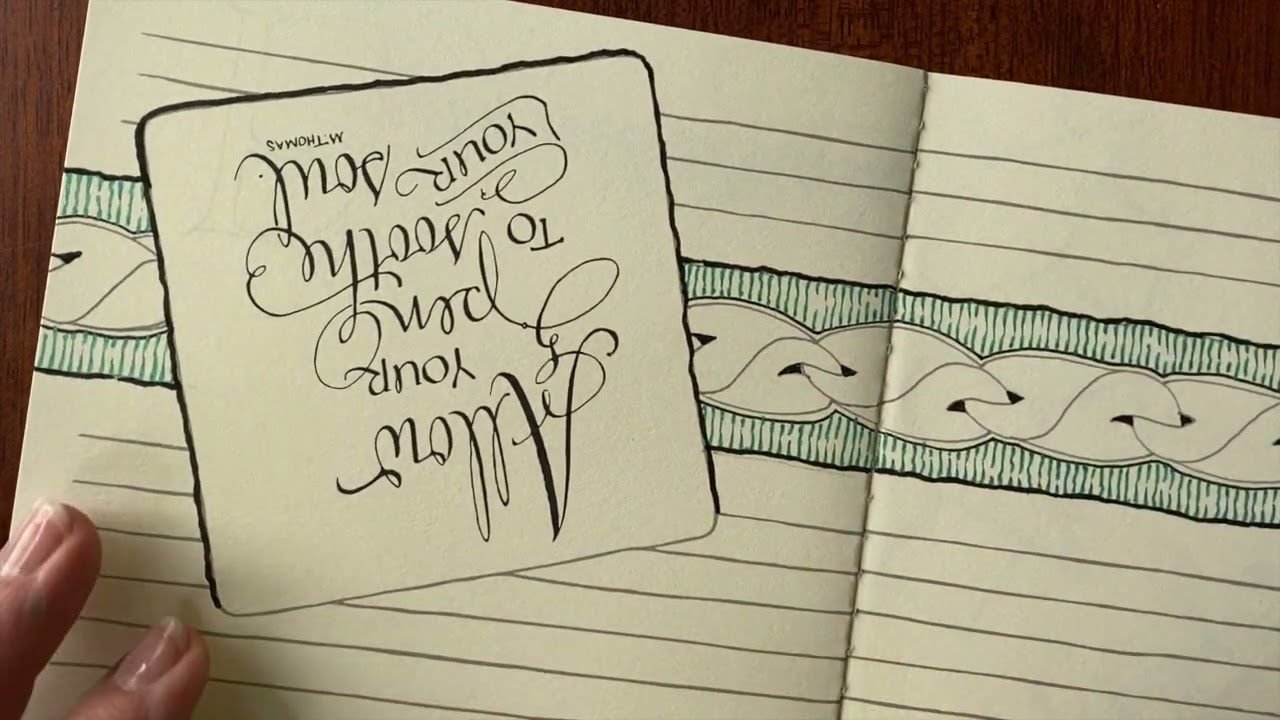 Allow
YOUR
pen
TO soothe
YOUR soul.
M.THOMAS